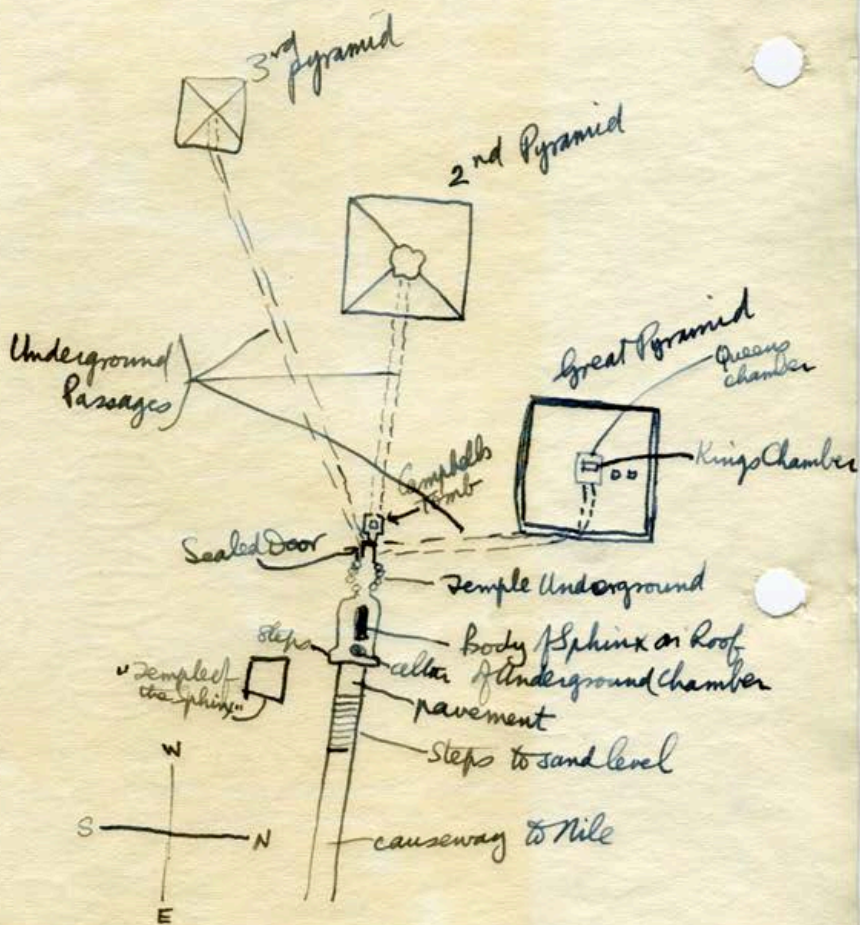 3rd
pyramid
2nd Pyramid
Underground
Passages
Great Pyramid
Queens
chamber
Kings Chamber
Campbells
Tomb
Sealed Door
Temple Underground
Steps
Body of Sphinx on Roof
altar
of Underground Chamber
"Temple of
the Sphinx"
pavement
Steps to sand level
W
S
N
E
causeway to Nile